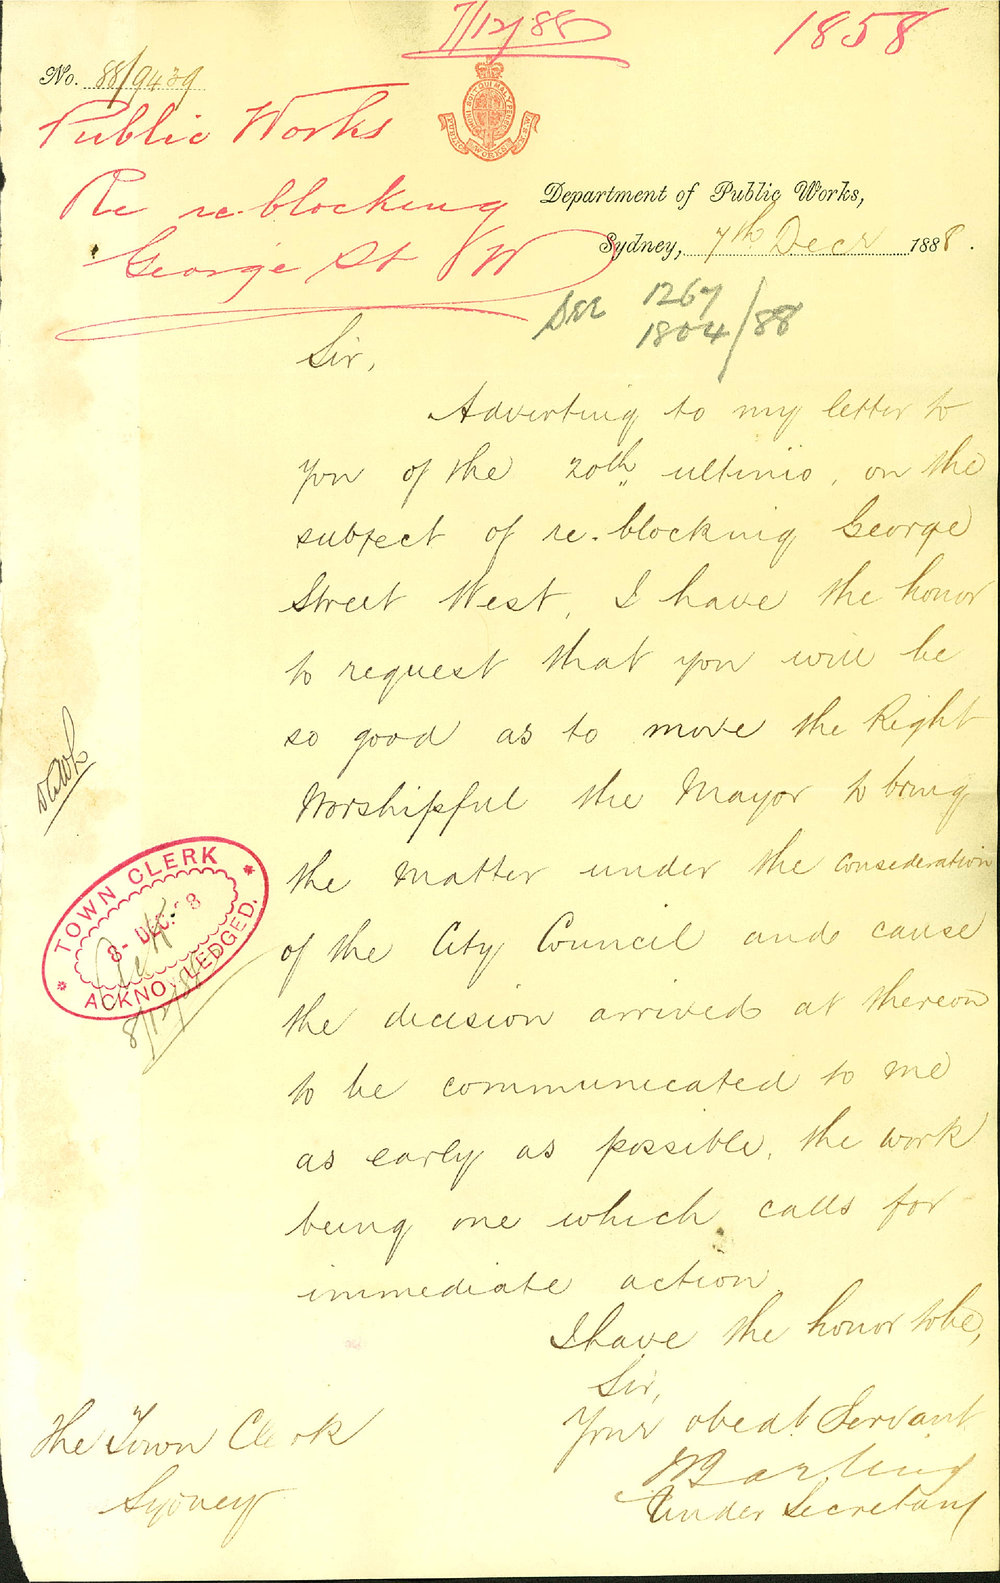 7/12/88
1858
No. 88/9439
Public Works
Re re-blocking
George St W
Department of Public Works,
Sydney, 7th Decr 1888.
1267
1804/88
Sir,
Adverting to my letter to
you of the 20th ultimo, on the
subject of re-blocking George
Street West, I have the honor
to request that you will be
so good as to move the Right
Worshipful the Mayor to bring
the matter under the consederation
of the City Council and cause
the decision arrived at thereon
to be communicated to me
as early as possible, the work
being one which calls for
immediate action
I have the honor to be,
Sir,
Your obedt Servant
Under Secretary
The Town Clerk
Sydney
TOWN CLERK
8 - DEC. 8
ACKNOWLEDGED.
8/12/88
PUBLIC WORKS N.S.W.